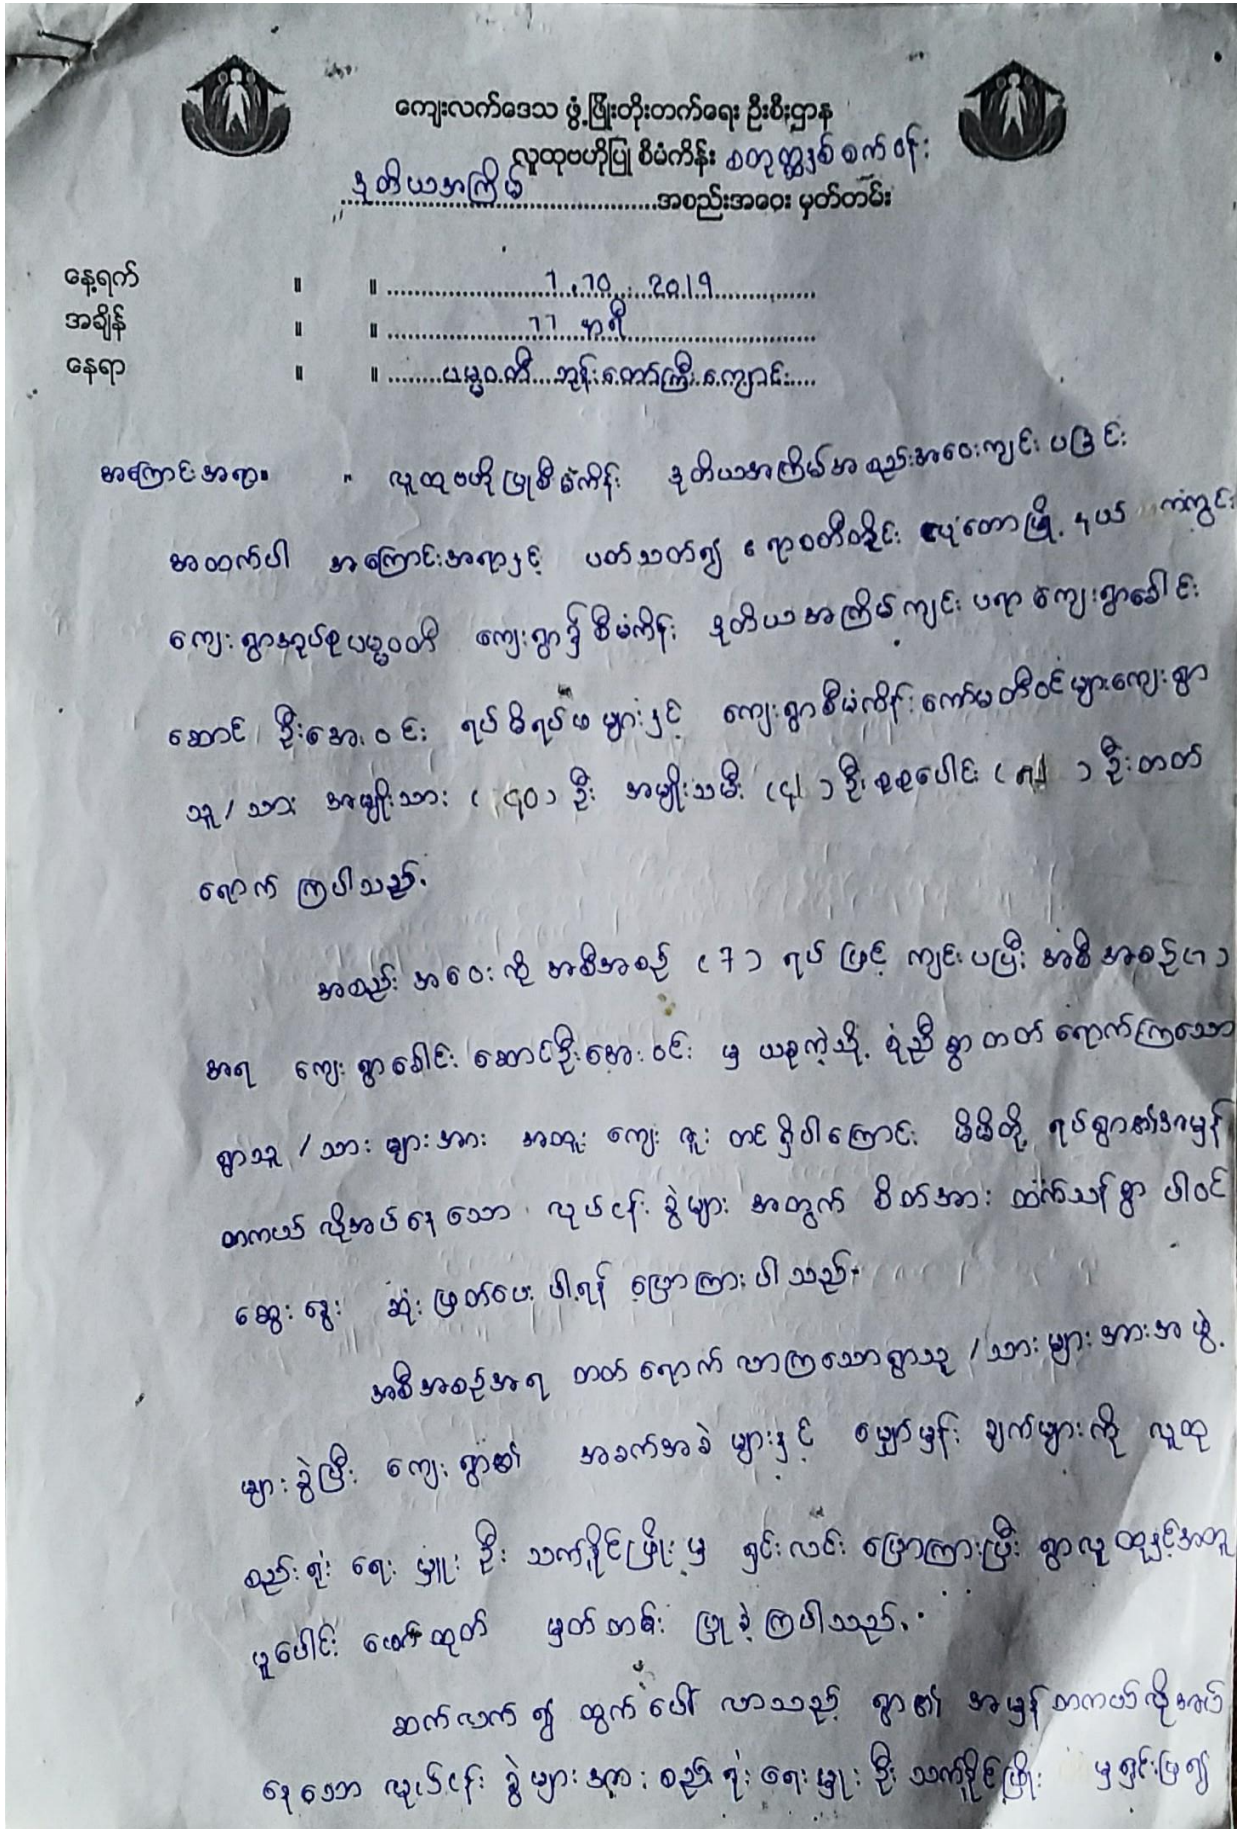 ကျေးလက်ဒေသ ဖွံ့ဖြိုးတိုးတက်ရေး ဦးစီးဌာန
လူထုဗဟိုပြု စီမံကိန်း စတုတ္ထနှစ်စက်ဝန်း
ဒုတိယအကြိမ်..........အစည်းအဝေး မှတ်တမ်း
နေ့ရက် ။ ။ 1.10.2019
အချိန် ။ ။ 11 နာရီ
နေရာ ။ ။ ပဒုမ္မဝတီ ဘုန်းတော်ကြီးကျောင်း
အကြောင်းအရာ။ ။ လူထုဗဟိုပြုစီမံကိန်း ဒုတိယအကြိမ်အစည်းအဝေးကျင်းပခြင်း
အထက်ပါ အကြောင်းအရာနှင့် ပတ်သတ်၍ ဧရာဝတီတိုင်း လပွတ္တာမြို့နယ်
ကျေးရွာအုပ်စု ကျေးရွာ၌ စီမံကိန်း ဒုတိယအကြိမ်ကျင်းပရာ ကျေးရွာခေါင်း
ဆောင် ဦးအေးဝင်း ရပ်မိရပ်ဖများနှင့် ကျေးရွာစီမံကိန်းကော်မတီဝင်များကျေးရွာ
သူ/သား အမျိုးသား (၄၀) ဦး အမျိုးသမီး ဦး စုစုပေါင်း ဦးတတ်
ရောက်ကြပါသည်.
အစည်းအဝေးကို အစီအစဉ် (၇) ရပ်ဖြင့် ကျင်းပပြီး အစီအစဉ်(၁)
အရ ကျေးရွာခေါင်းဆောင်ဦးအေးဝင်း မှ ယခုကဲ့သို့ စုံညီစွာ တတ်ရောက်ကြသော
ရွာသူ/သားများအား အထူး ကျေးဇူး တင်ရှိပါကြောင်း မိမိတို့ ရပ်ရွာ၏အမှန်
တကယ်လိုအပ်နေသော လုပ်ငန်းခွဲများ အတွက် စိတ်အား ထက်သန်စွာ ပါဝင်
ဆွေးနွေး ဆုံးဖြတ်ပေးပါရန် ပြောကြားပါသည်.
အစီအစဉ်အရ တတ်ရောက်လာကြသောရွာသူ/သားများအားအဖွဲ့
များခွဲပြီး ကျေးရွာ၏ အခက်အခဲများနှင့် မျှော်မှန်းချက်များကို လူထု
စည်းရုံးရေးမှူး ဦးသက်နိုင်ဖြိုး မှ ရှင်းလင်းပြောကြားပြီး ရွာလူထုနှင့်အတူ
ပူပေါင်းဖော်ထုတ် မှတ်တမ်းပြုခဲ့ကြပါသည်.
ဆက်လက်၍ ထွက်ပေါ်လာသည့် ရွာ၏ အမှန်တကယ်လိုအပ်
နေသော လုပ်ငန်းခွဲများအား စည်းရုံးရေးမှူး ဦးသက်နိုင်ဖြိုး မှရှင်းပြ၍